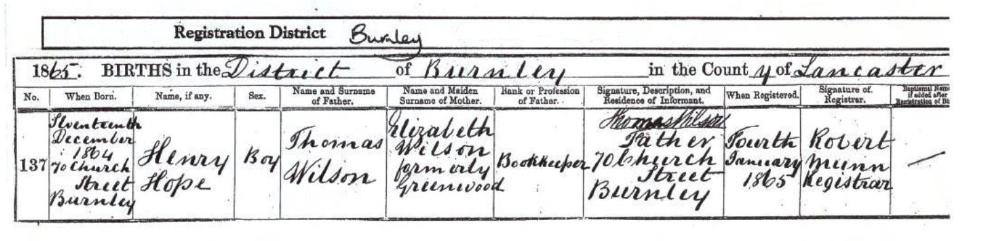 Registration District Burnley
1865. BIRTHS in the District of Burnley in the County of Lancaster
No. When Born. Name, if any. Sex. Name and Surname of Father. Name and Maiden Surname of Mother. Rank or Profession of Father. Signature, Description, and Residence of Informant. When Registered. Signature of Registrar. Baptismal Name if added after Registration of
137
Seventeenth
December
1864
70 Church
Street
Burnley
Henry
Hope
Boy
Thomas
Wilson
Elizabeth
Wilson
formerly
Greenwood
Bookkeeper
Thomas Wilson
Father
70 Church
Street
Burnley
Fourth
January
1865
Robert
Munn
Registrar